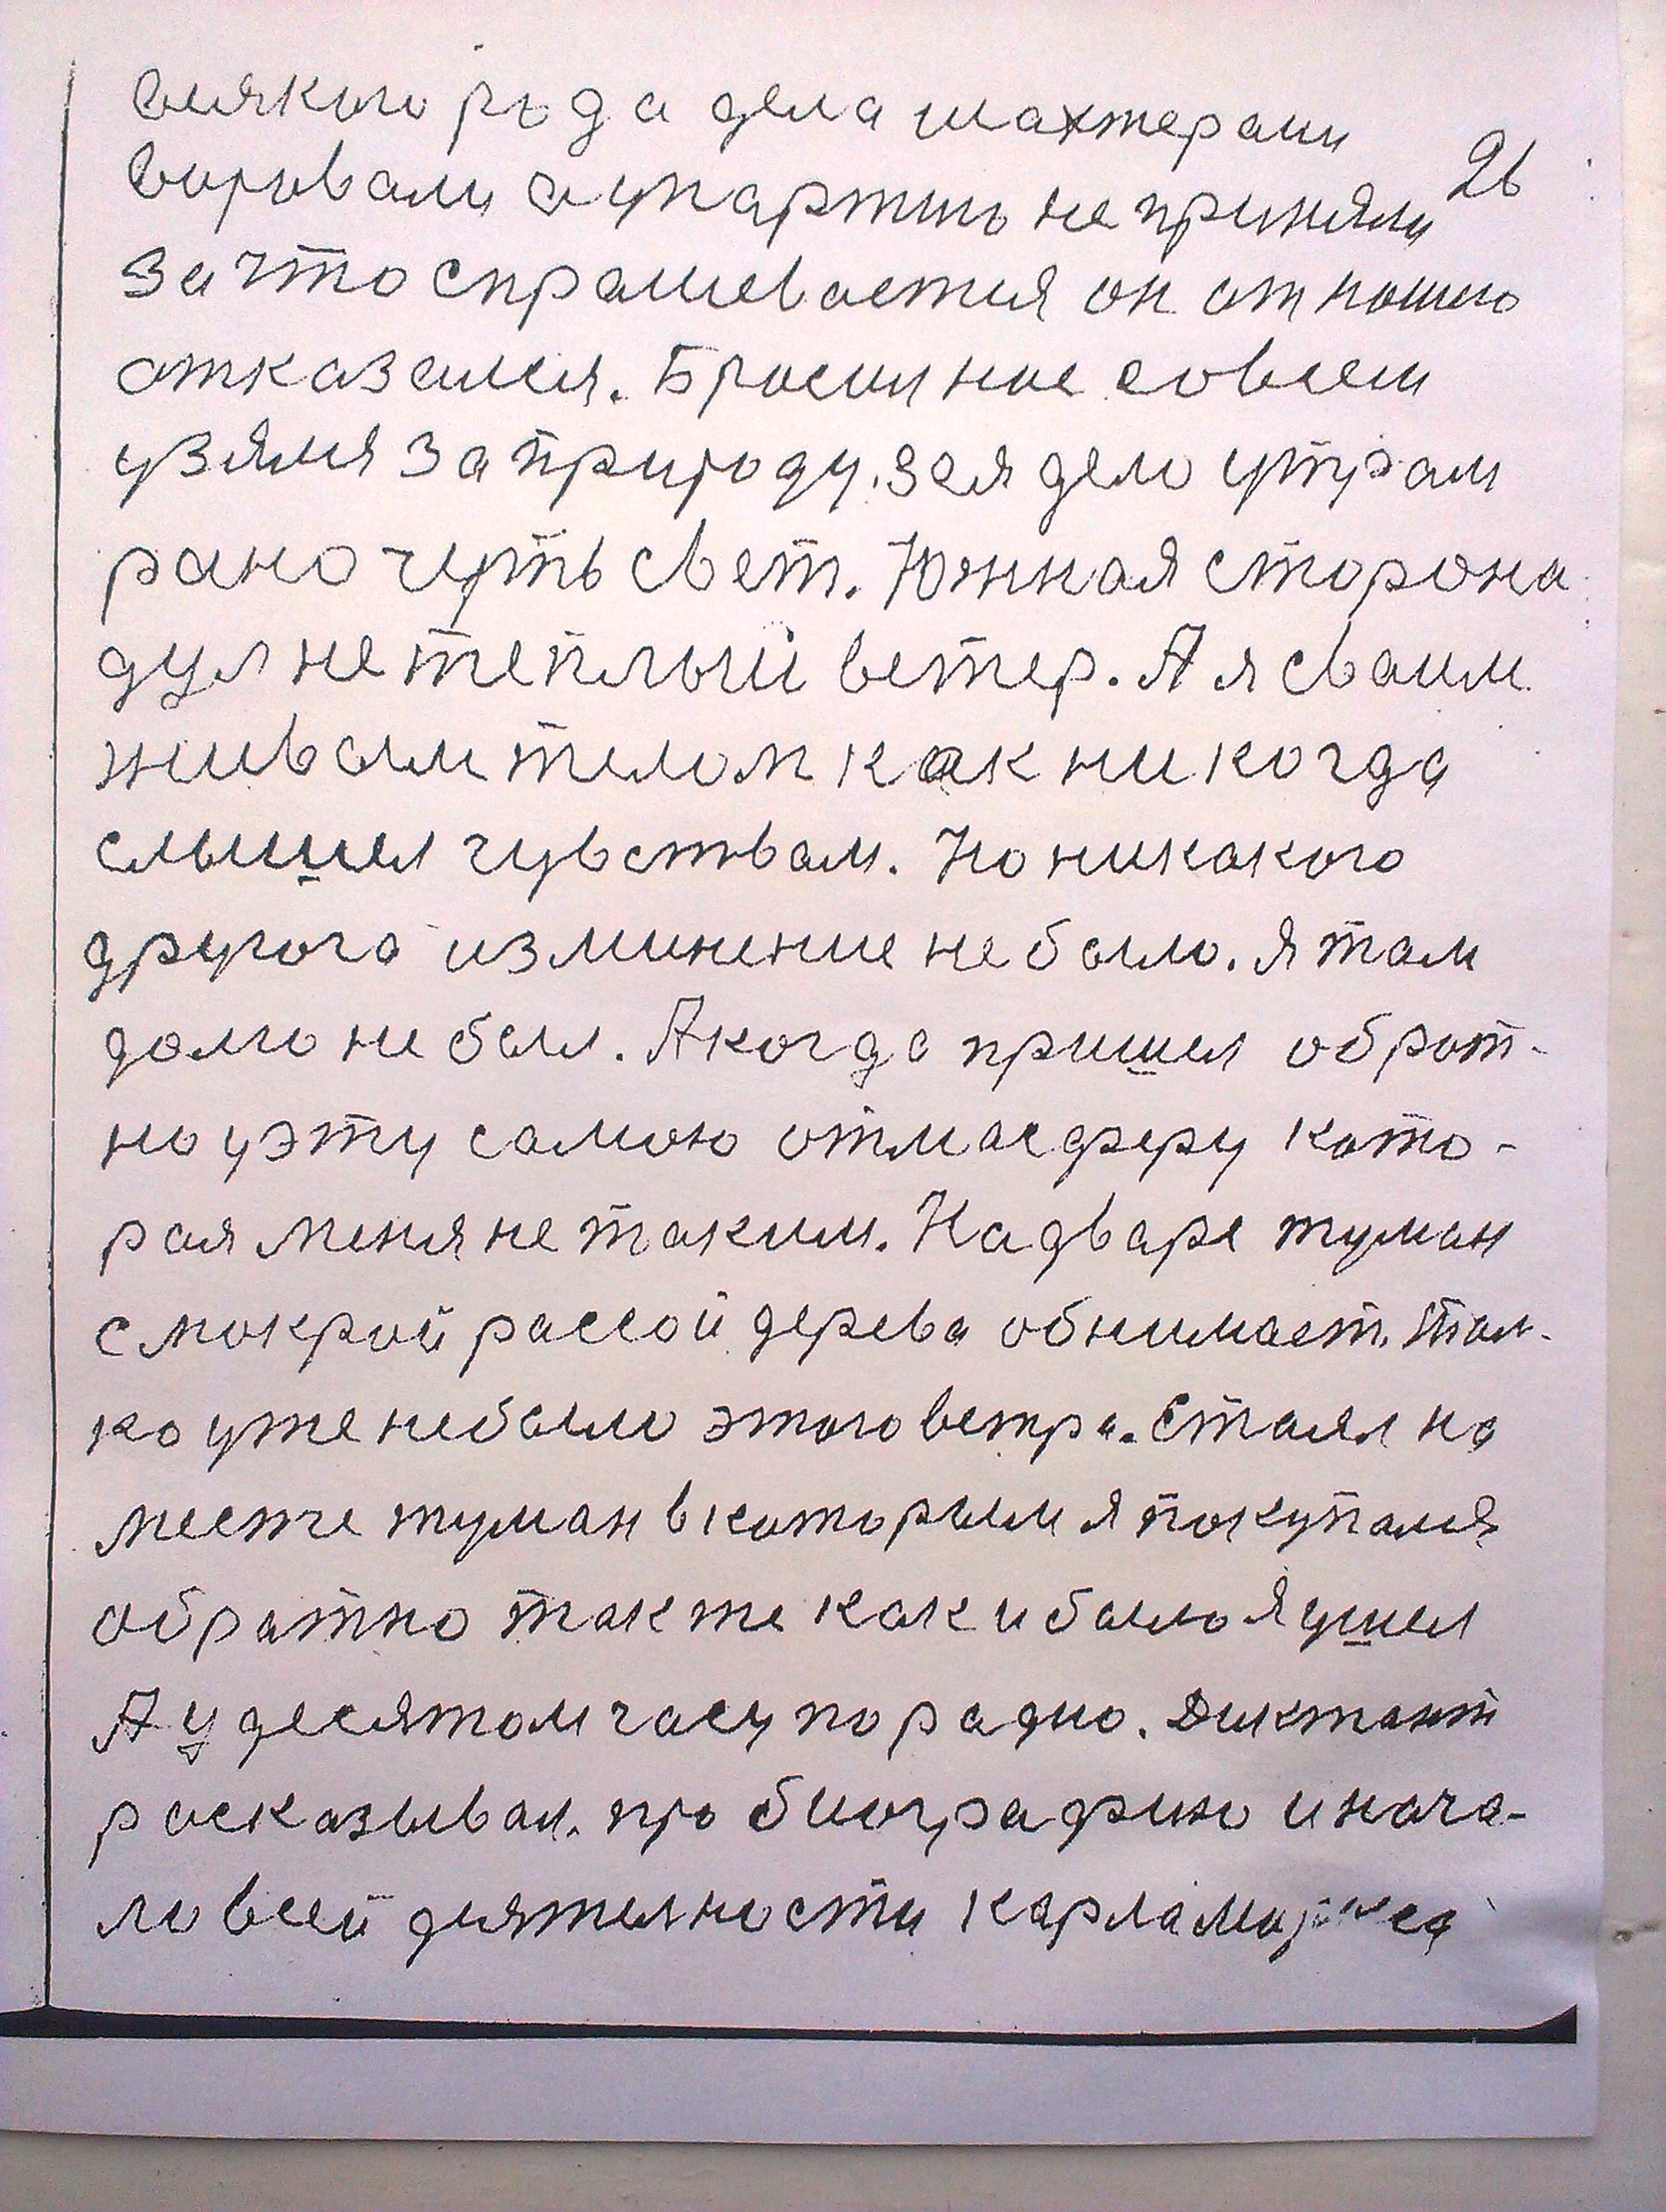 всякого рода дела шахтерами
26
воровали а упартию не приняли
За что спрашевается он от нашего
отказался. Бросил нас совсем
узялся за природу. Зза дело утрам
рано чуть свет. Южная сторона
дул не теплый ветер. А я сваим
живым телом как никогда
слышел чувствам. Но никакого
другого изминение небыло. Я там
долго не был. А когда пришел обрат-
но уэту самою отмасферу кото-
рая меня не таким. На дваре туман
с мокрой рассой дерева обнимает. Тол-
ко уже небыло этого ветра. Стаял на
месте туман в которым я покупался
обратно так же как и было я ушел
А у десятом часу по радио. Диктант
расказывал. про биографию и нача-
ло всей деятелности Карла Маркса